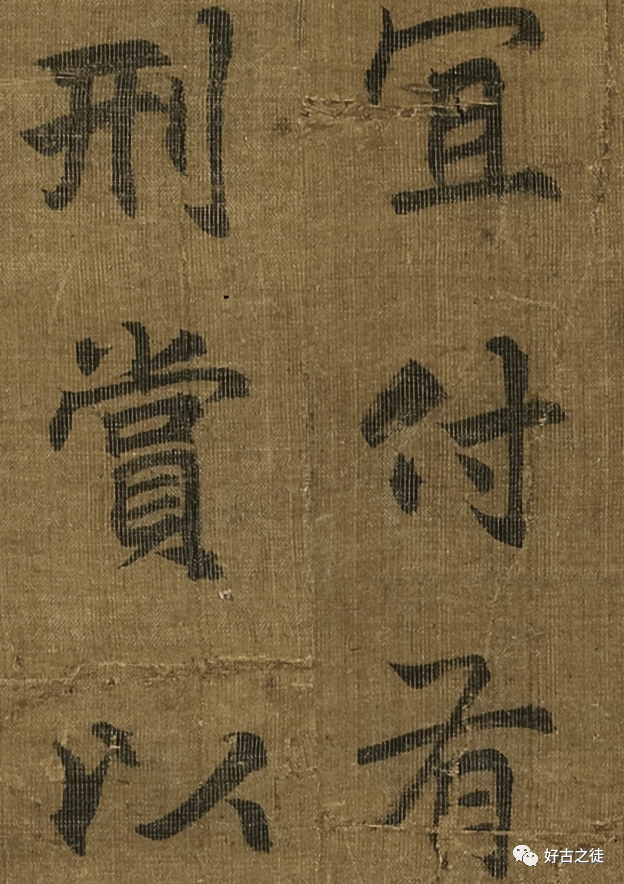 冝付有
刑賞以
好古之徒